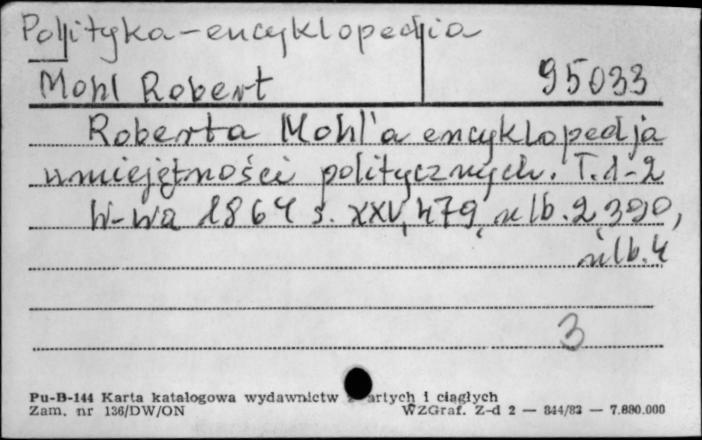 Polityka-encyklopedia
Mohl Robert 95033
Roberta Mohl'a encyklopedja
umiejętności politycznych. T.1-2
W-wa 1864 s. XXV, 479, nlb. 2, 390,
nlb. 4
3
Pu-B-144 Karta katalogowa wydawnictw artych i ciągłych
Zam. nr 136/DW/ON WZGraf. Z-d 2 — 844/83 — 7.880.000